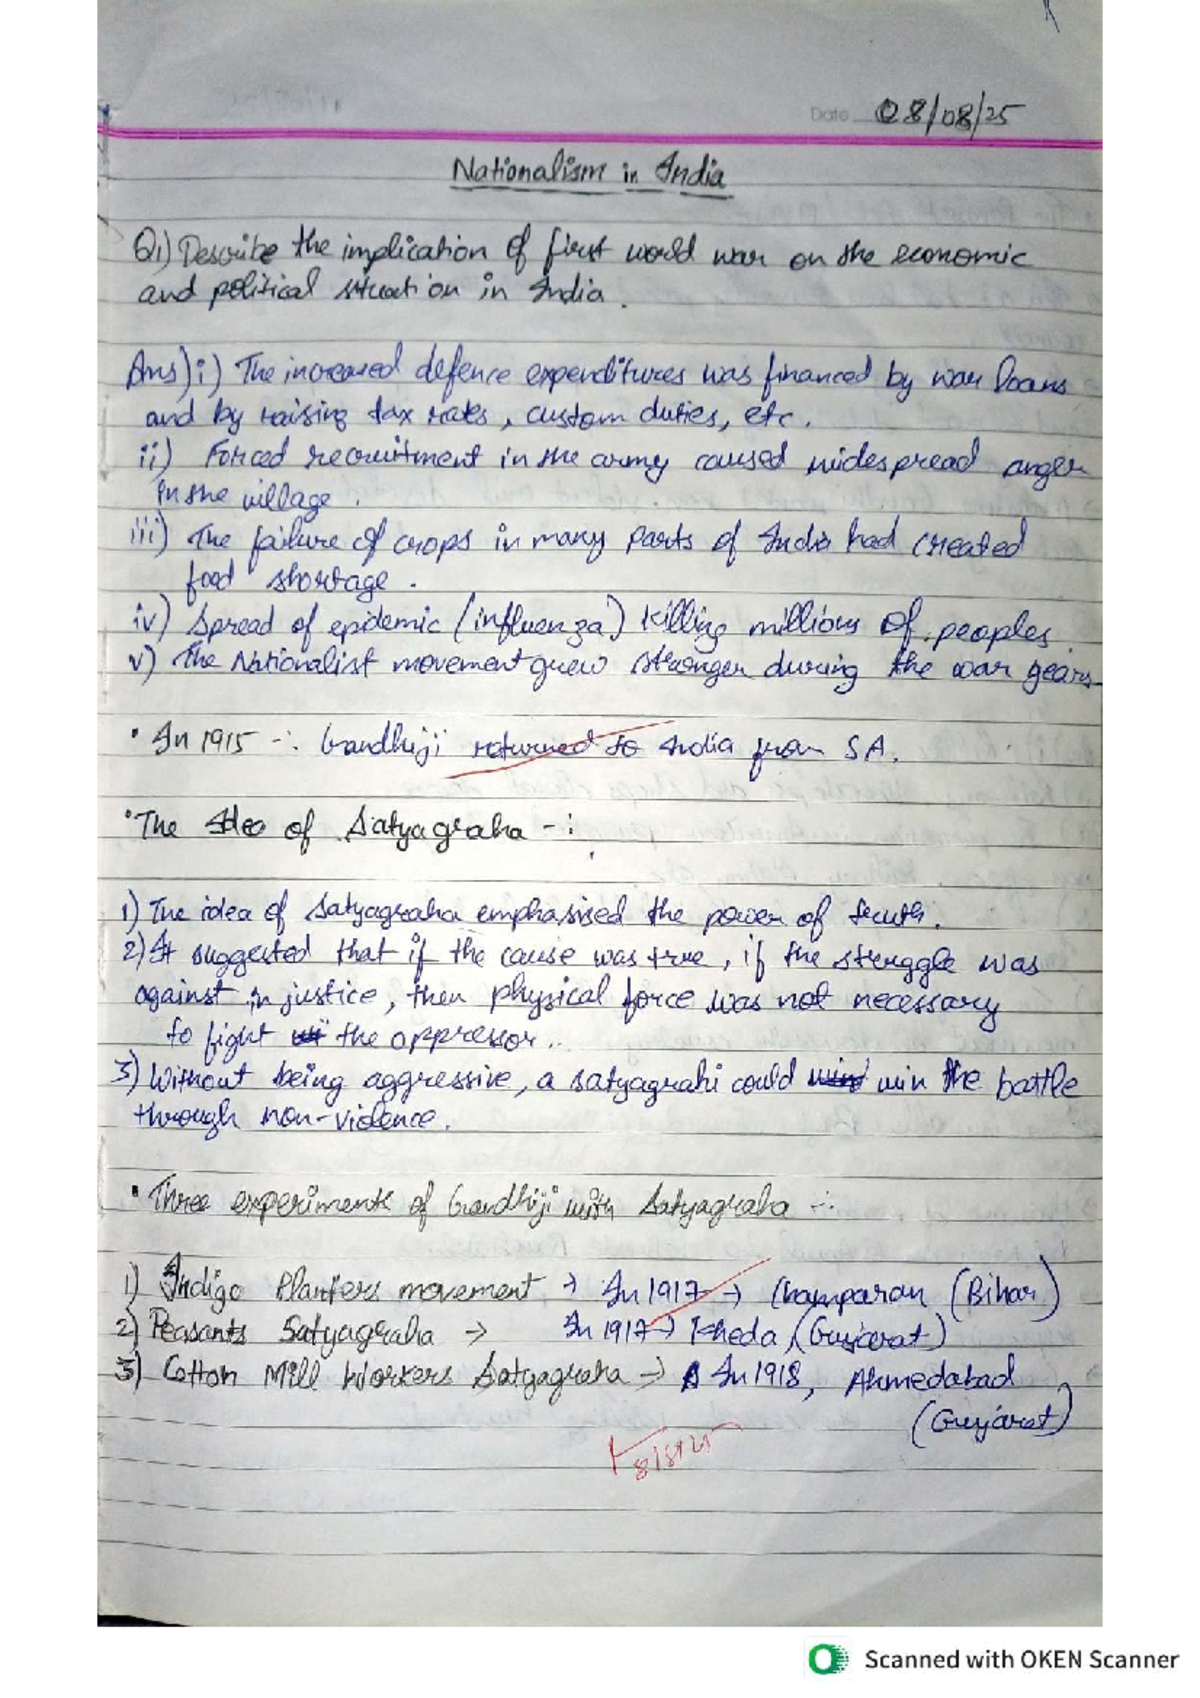 Date 08/08/25
Nationalism in India
Q1) Describe the implication of first world war on the economic
and political situation in India.
Ans) i) The increased defence expenditures was financed by war loans
and by raising tax rates, custom duties, etc.
ii) Forced recruitment in the army caused widespread anger
in the village.
iii) The failure of crops in many parts of India had created
food shortage.
iv) Spread of epidemic (influenza) killing millions of peoples
v) The Nationalist movement grew stronger during the war years
• In 1915 -: Gandhiji returned to India from SA.
• The Idea of Satyagraha -:
1) The idea of Satyagraha emphasised the power of truth.
2) It suggested that if the cause was true, if the struggle was
against injustice, then physical force was not necessary
to fight the oppressor..
3) Without being aggressive, a satyagrahi could win the battle
through non-violence.
• Three experiments of Gandhiji with Satyagraha -:
1) Indigo Planters movement → In 1917 → Champaran (Bihar)
2) Peasants Satyagraha → In 1917 → Kheda (Gujarat)
3) Cotton Mill Workers Satyagraha → In 1918, Ahmedabad
(Gujarat)
Scanned with OKEN Scanner